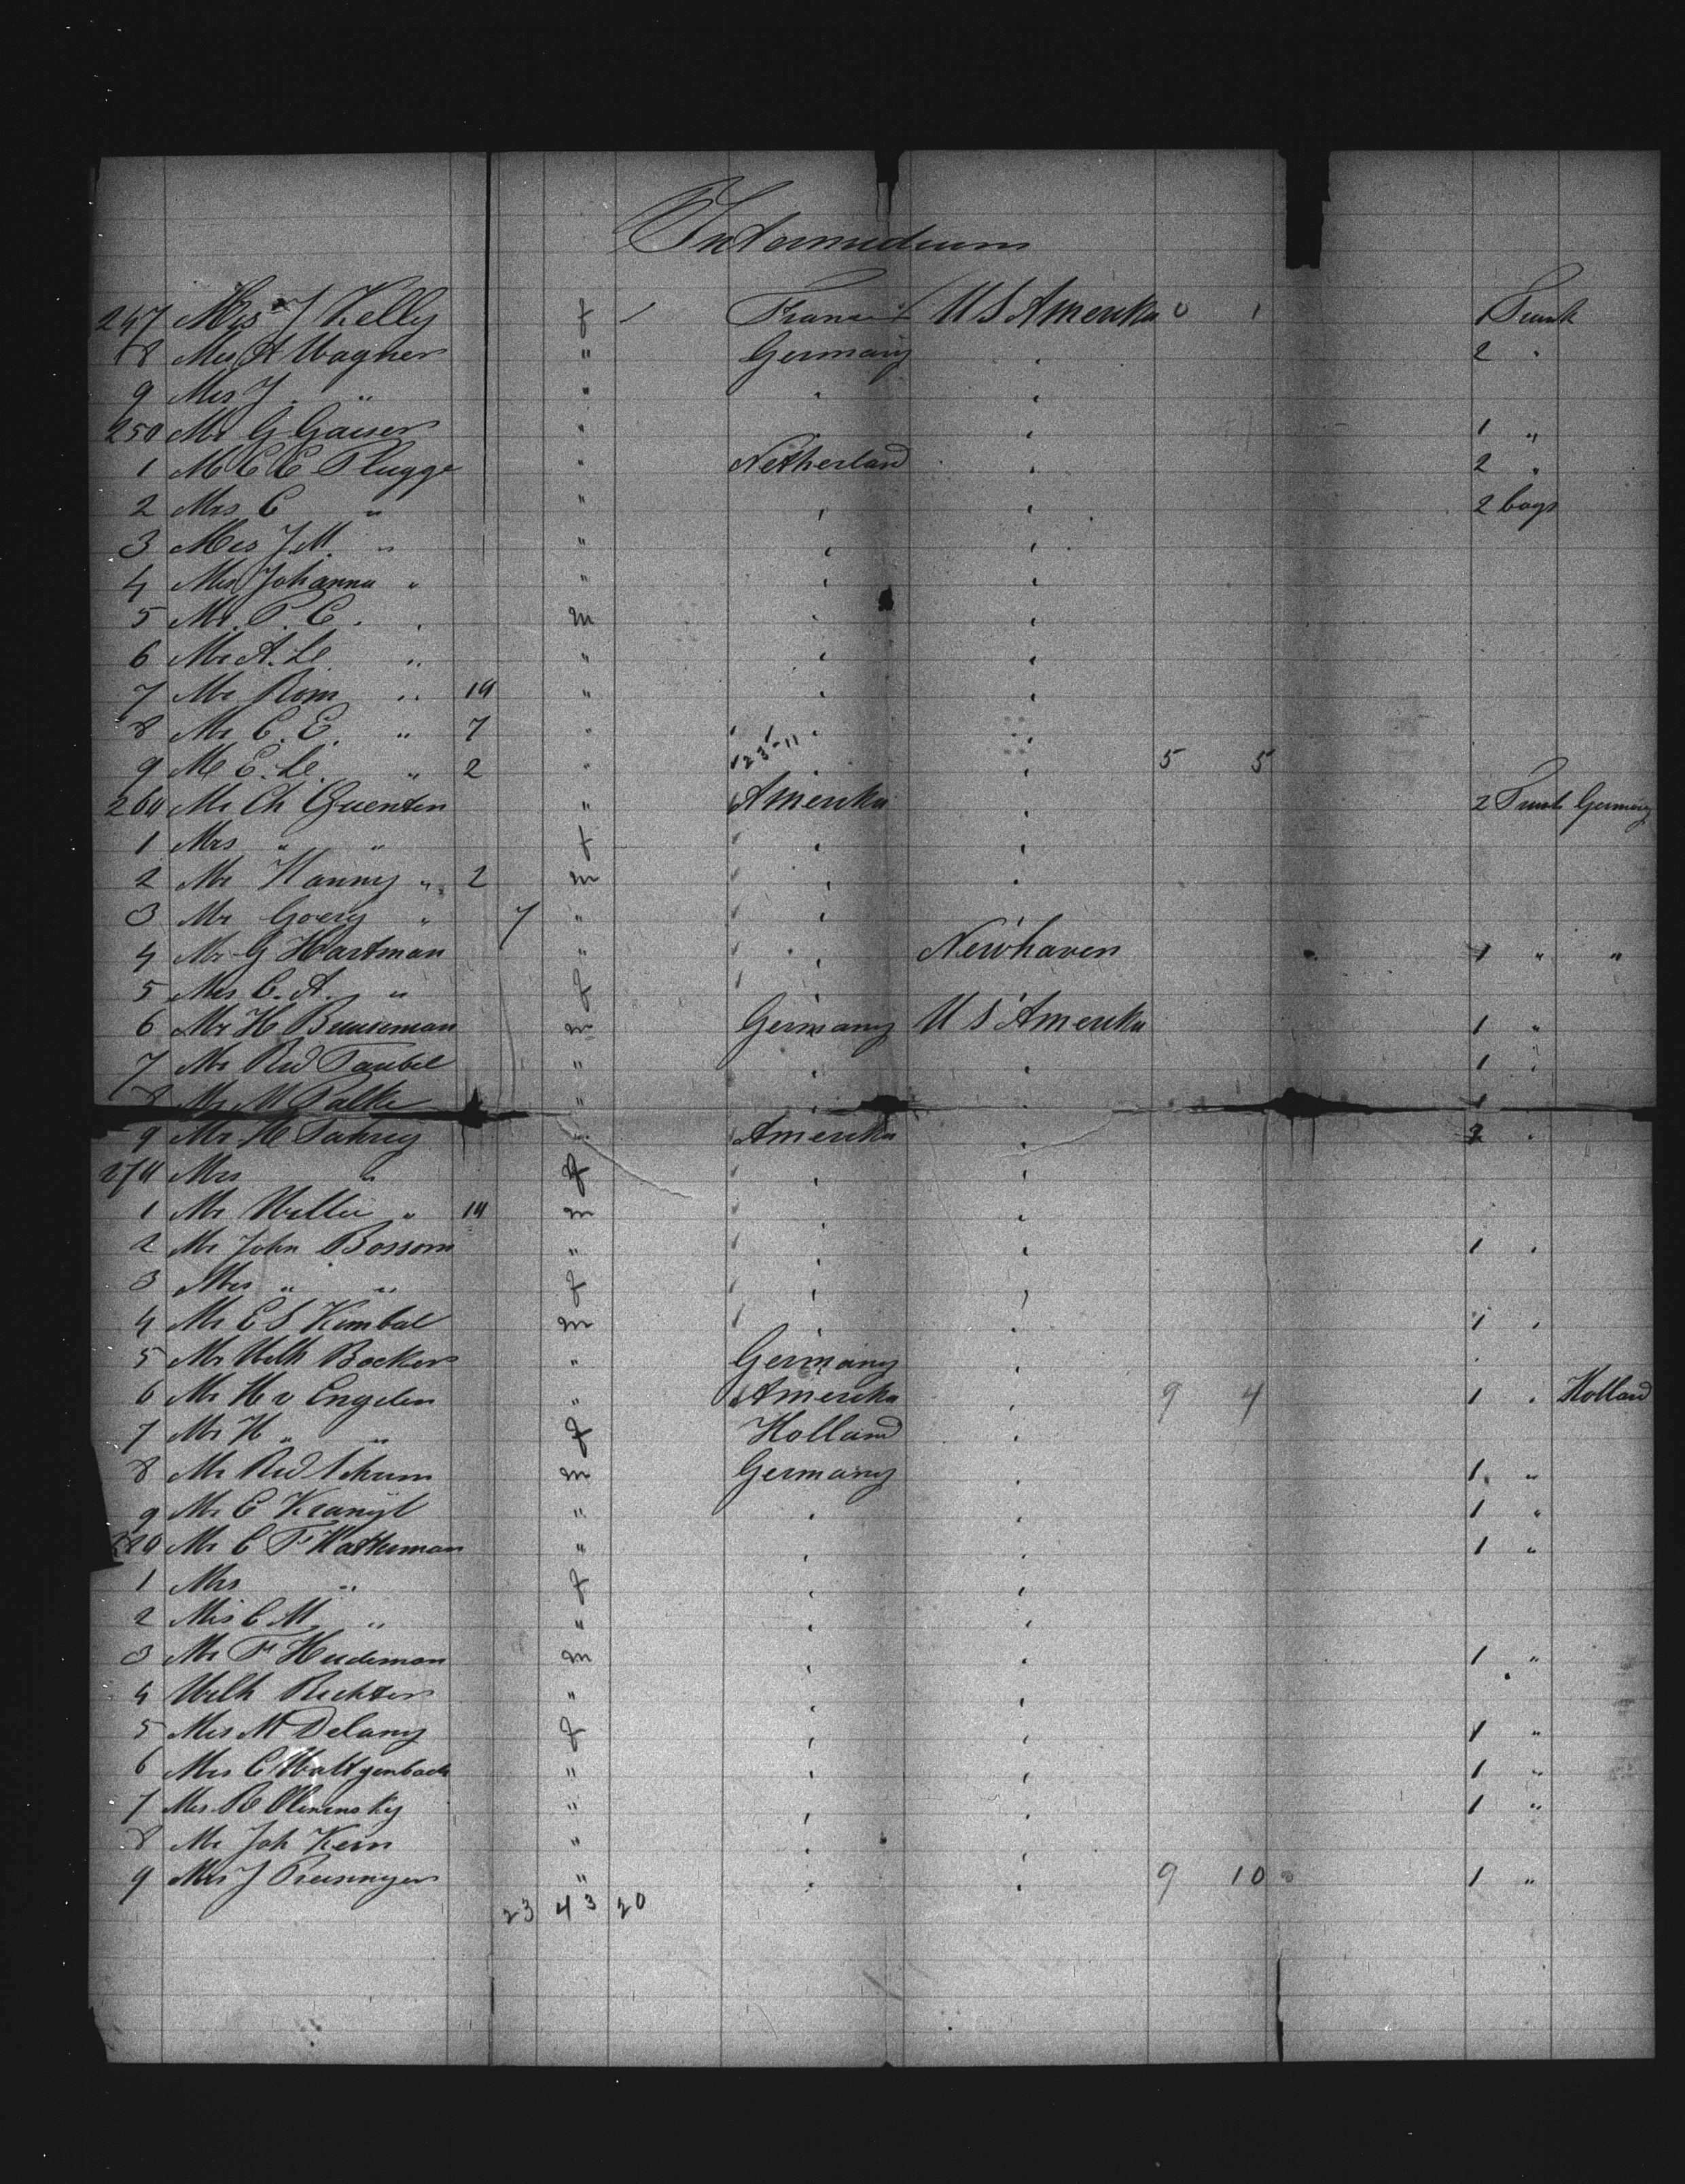 Intermedium
247 Mrs J Kelly f / France U S Amerika 0 1 1 Trunk
8 Mrs A Wagner " Germany " 2 "
9 Mrs J " " " "
250 Mr G Gaiser " " " 1 "
1 M C C Plugge " Netherland " 2 "
2 Mrs C " " " " 2 bags
3 Mrs J. M. " " " "
4 Mrs Johanna " " " "
5 Mr. P. C. " m " "
6 Mr A. " " " "
7 Mr Rom " 10 " " "
8 Mr C. E. " 7 " " "
9 M E. " 2 " 23-11 " 5 5
260 Mr Ch Quenten " Amerika " 2 Trunk Germany
1 Mrs " " f " "
2 Mr Hanny " 2 m " "
3 Mr Goerg " 7 " " "
4 Mr G Hartman " " Newhaven 1 " "
5 Mrs C. A. " f " "
6 Mr H Bruseman m Germany U S Amerika 1 "
7 Mr Rud Taubel " " " 1 "
8 Mr M Palke " " " 1
9 Mr H Fahrig " Amerika " 2 "
270 Mrs " f " "
1 Mr Willie " 10 m " "
2 Mr John Bossom " " " 1 "
3 Mrs " " f " "
4 Mr E S Kimbal m " " 1 "
5 Mr Wilh Bocker " Germany "
6 Mr H v Engelen " Amerika " 9 4 1 " Holland
7 Mr H " " f Holland "
8 Mr Rud Schum m Germany " 1 "
9 Mr E Krangl " " " 1 "
280 Mr C F Hatterman " " " 1 "
1 Mrs " f " "
2 Mis C M " " " "
3 Mr F Heideman m " " 1 "
4 Wilh Richter " " "
5 Mrs M Delany f " " 1 "
6 Mrs C Waltgenbach " " " 1 "
7 Mrs R " " " 1 "
8 Mr Joh Kern " " "
9 Mrs J Preininger " " " 9 10 1 "
23 43 20